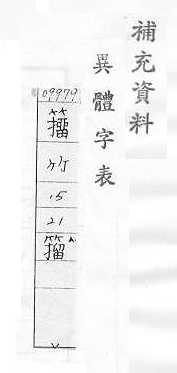 補充資料
異體字表
09979
竹
15
21
籀